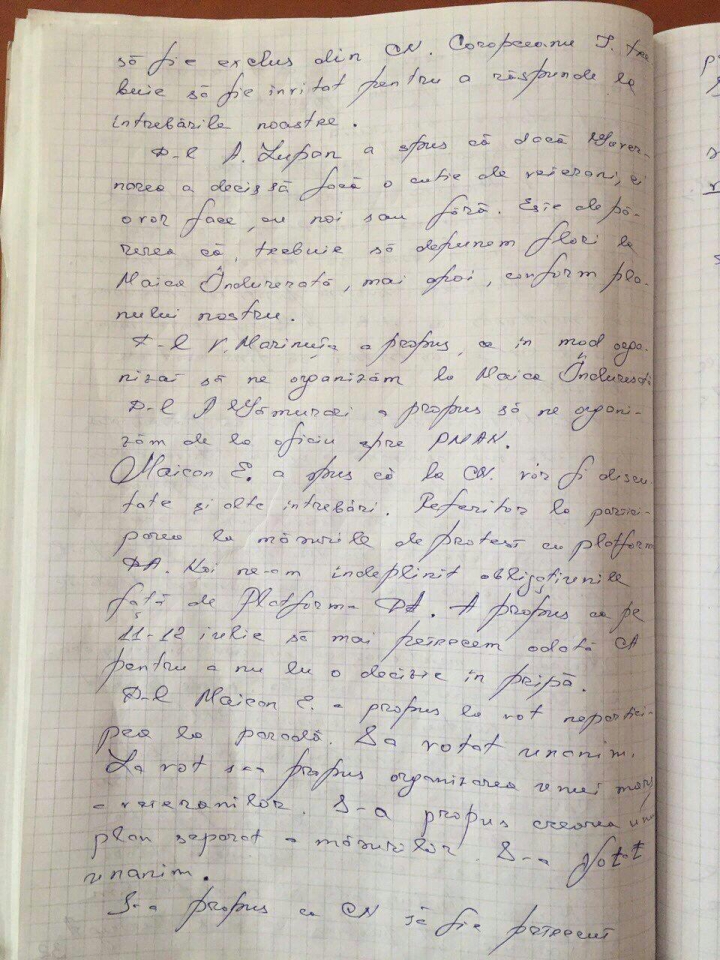 să fie exclus din CN. Coropceanu I. tre
buie să fie invitat pentru a răspunde la
întrebările noastre.
D-l A. Lupan a spus că dacă Guver-
narea a decis să facă o cutie de veterani, ei
o vor face, cu noi sau fără. Este de pă-
rerea că, trebuie să depunem flori la
Maica Îndurerată, mai apoi, conform pla-
nului nostru.
D-l V. Marinuța a propus, ca in mod orga-
nizat să ne organizăm la Maica
D-l a propus să ne organi-
zăm de la oficiu spre PMAN.
Maican E. a spus că la CN. vor fi discu
tate și alte intrebări. Referitor la partici-
parea la măsurile de protest cu platforma
DA. Noi ne-am indeplinit obligațiunile
față de Platforma DA. A propus ca pe
11-12 iulie să mai petrecem odată CA
pentru a nu lu o decizie in pripă.
D-l Maican E. a propus la vot neparticí-
pea la paradă. S a votat unanim.
La vot s-a propus organizarea unui marș
a veteranilor. S-a propus crearea unui
plan separat a măsurilor. S-a Votat
unanim.
S-a propus ca CN să fie petrecut